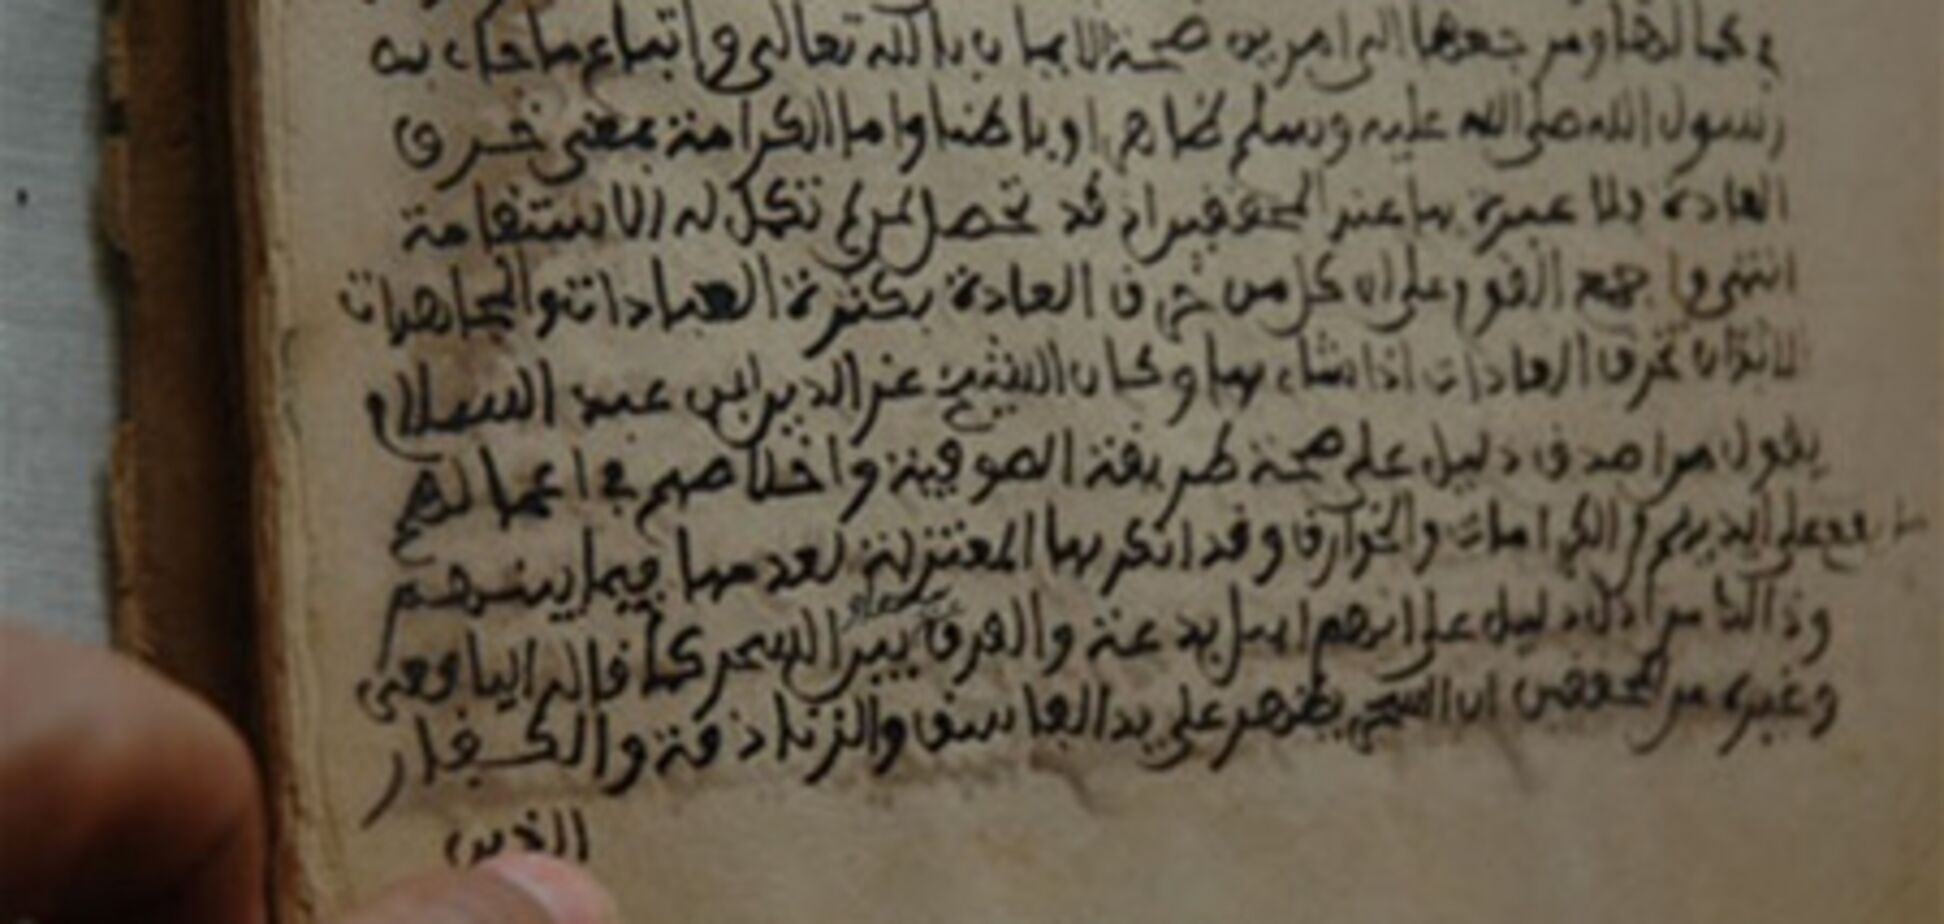 كمالها ومرجعها الى امرين صحة الايمان بالله تعالى واتباع ما جاء به
رسول الله صلى الله عليه وسلم ظاهرا وباطنا واما الكرامة بمعنى خرق
العادة فلا عبرة بها عند المحققين اذ قد تحصل لمن لم تكمل له الاستقامة
انتهى واجمع القوم على ان كل من خرق العادة بكثرة العبادات والمجاهدات
لا بد ان تخرق العادات اذا شاء بها وكان الشيخ عز الدين ابن عبد السلام
يقول من اصدق دليل على صحة طريقة الصوفية واخلاصهم في اعمالهم
ما يقع على ايديهم من الكرامات والخوارق وقد انكر بها المعتزلة لعدمها فيما بينهم
وذالك من ادل دليل على انهم اهل بدعة والفرق بين السحر كما قاله اليافعي
وغيره من المحققين ان السحر يظهر على يد الفاسق والزنادقة والكفار
الذين